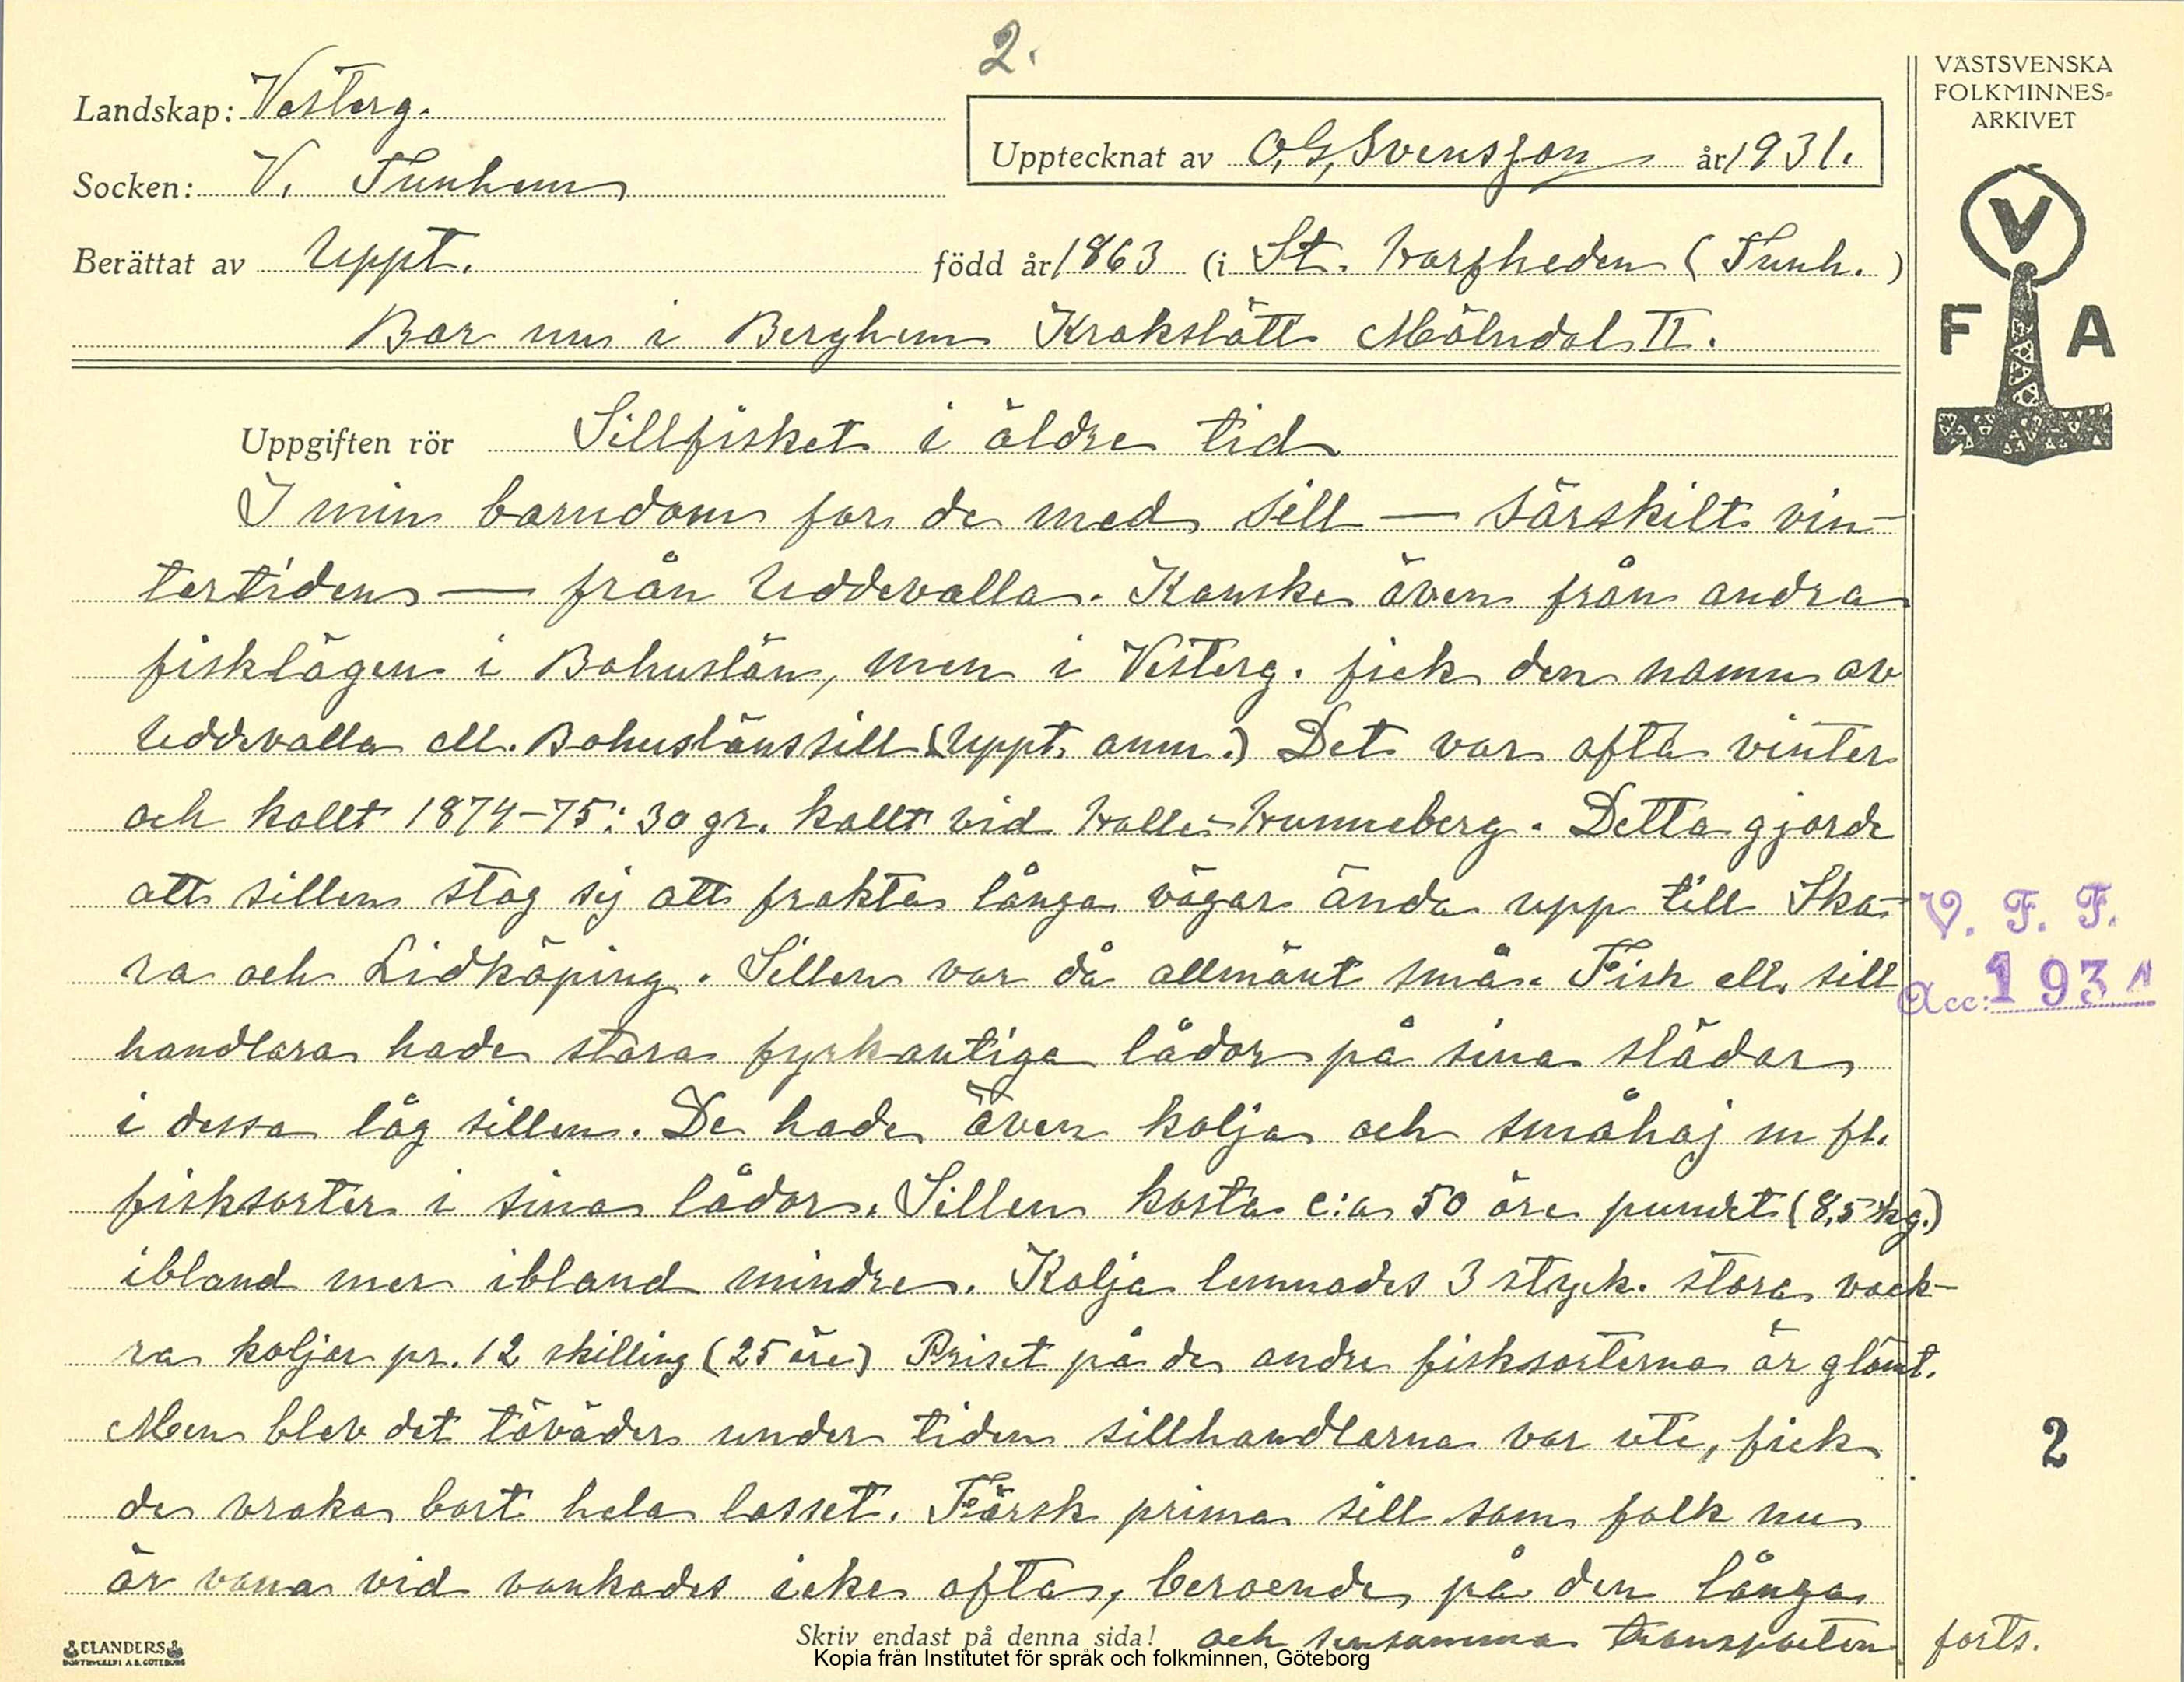 2.
Landskap: Vesterg.
Socken: V. Tunhem
Upptecknat av O,G, Svensson år 1931.
Berättat av Uppt. född år 1863 (i St. Hvarfheden (Tunh.)
Bor nu i Berghem Krokslätt Mölndal II.
VÄSTSVENSKA
FOLKMINNES-
ARKIVET
V
F A
Uppgiften rör Sillfisket i äldre tid
I min barndom for de med sill — särskilt vin-
tertiden — från Uddevalla. Kanske även från andra
fisklägen i Bohuslän, men i Vesterg. fick den namn av
Uddevalla ell. Bohuslänssill (Uppt. anm.) Det var ofta vinter
och kallt 1874-75: 30 gr. kallt vid Halle-Hunneberg. Detta gjorde
att sillen stog sig att frakta långa vägar ända upp till Ska-
ra och Lidköping. Sillen var då allmänt små. Fisk ell. sill
handlara hade stora fyrkantiga lådor på sina slädar,
i dessa låg sillen. De hade även kolja och småhaj m fl.
fisksorter i sina lådor. Sillen kosta c:a 50 öre pundet (8,5 kg.)
ibland mer ibland mindre. Kolja lemnades 3 styck. stora vack-
ra koljor pr. 12 skilling (25 öre) Priset på de andra fisksorterna är glömt.
Men blev det töväder under tiden sillhandlarna var ute, fick
de vraka bort hela lasset. Färsk prima sill som folk nu
är vana vid vankades icke ofta, beroende på den långa
och sensamma transporten forts.
V. F. F.
Acc: 1931
2
ELANDERS
BOKTRYCKERI A.B. GÖTEBORG
Skriv endast på denna sida!
Kopia från Institutet för språk och folkminnen, Göteborg